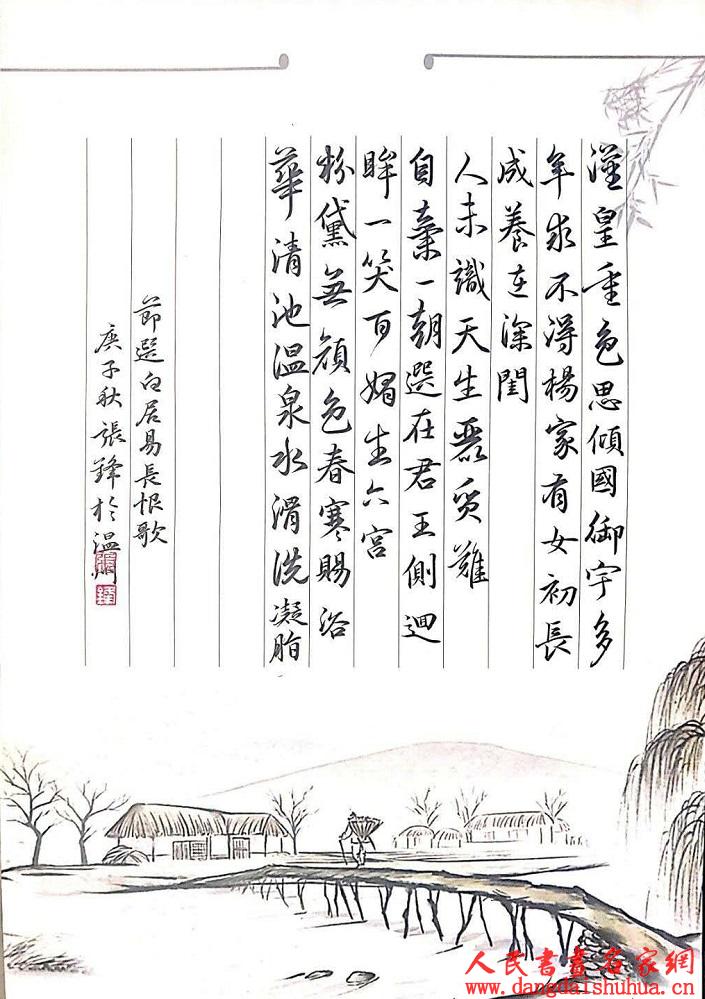 漢皇重色思傾國御宇多
年求不得楊家有女初長
成養在深閨
人未識天生麗質難
自棄一朝選在君王側迴
眸一笑百媚生六宮
粉黛無顏色春寒賜浴
華清池温泉水滑洗凝脂
節選白居易長恨歌
庚子秋張鋒於温州
人民書畫名家網
www.dangdaishuhua.cn